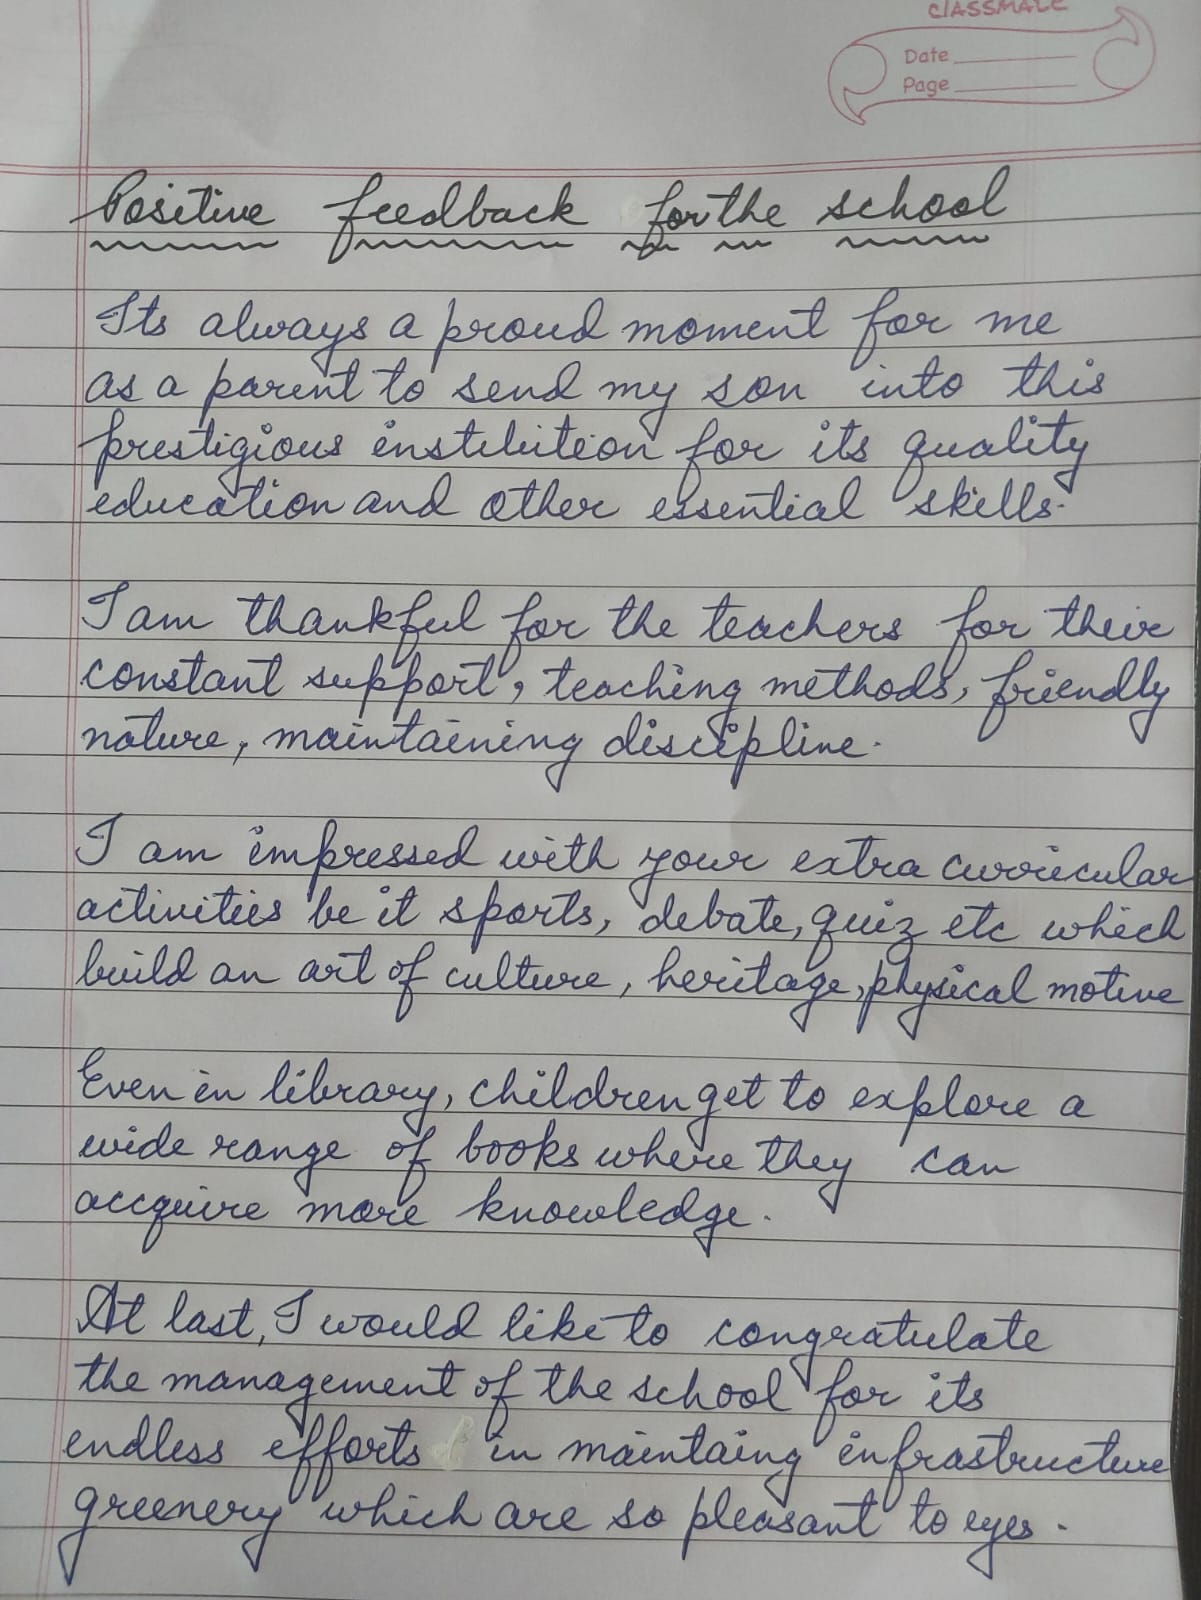 classmate
Date
Page
Positive feedback for the school
Its always a proud moment for me
as a parent to send my son into this
prestigious institution for its quality
education and other essential skills.
I am thankful for the teachers for their
constant support, teaching methods, friendly
nature, maintaining discipline.
I am impressed with your extra curricular
activities be it sports, debate, quiz etc which
build an art of culture, heritage, physical motive
Even in library, children get to explore a
wide range of books where they can
accquire more knowledge.
At last, I would like to congratulate
the management of the school for its
endless efforts in maintaing infrastructure
greenery which are so pleasant to eyes.